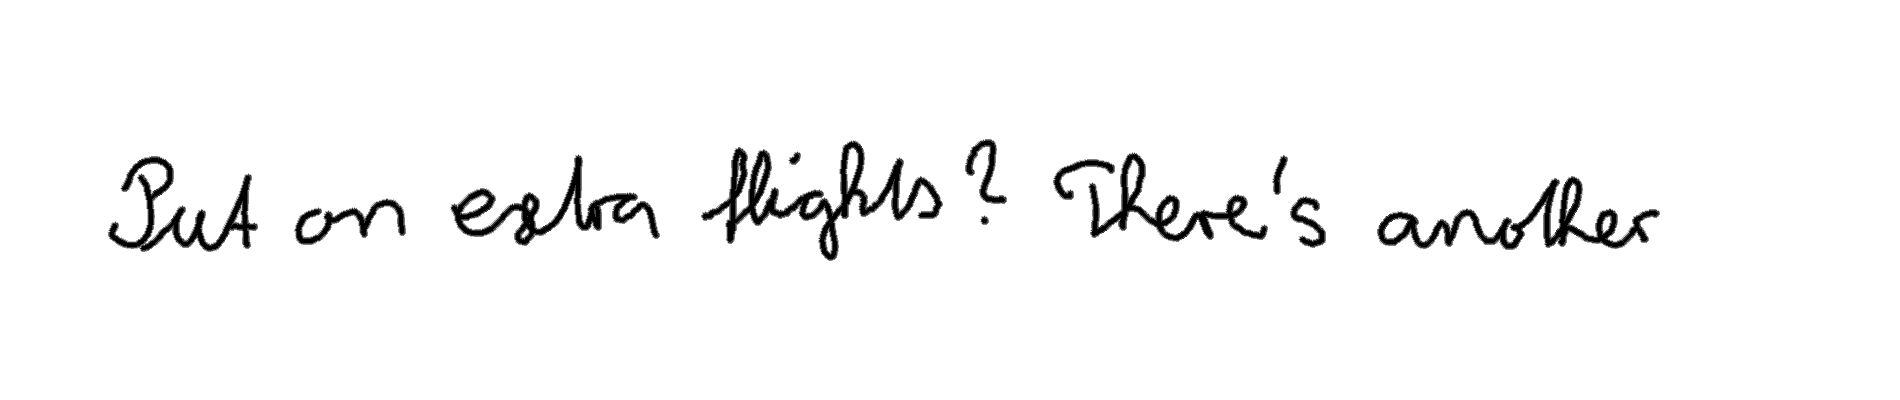 Put on extra flights? There's another